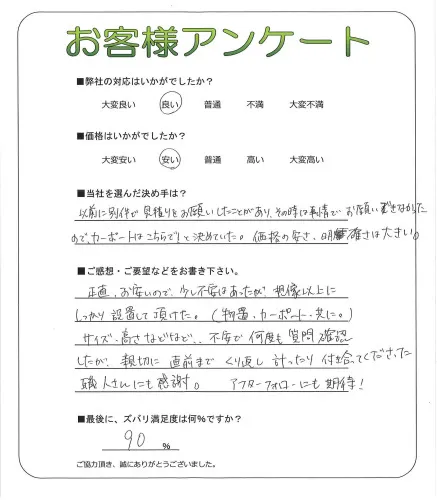 お客様アンケート
■弊社の対応はいかがでしたか？
大変良い 良い 普通 不満 大変不満
■価格はいかがでしたか？
大変安い 安い 普通 高い 大変高い
■当社を選んだ決め手は？
以前に別件で見積りをお願いしたことがあり、その時は事情でお願いできなかった
ので、カーポートはこちらで！と決めていた。価格の安さ、明確さは大きい。
■ご感想・ご要望などをお書き下さい。
正直、お安いので、少し不安はあったが、想像以上に
しっかり設置して頂けた。（物置、カーポート、共に。）
サイズ・高さなどなど、、不安で何度も質問確認
したが、親切に直前までくり返し計ったり付き合ってくださった
職人さんにも感謝。 アフターフォローにも期待！
■最後に、ズバリ満足度は何%ですか？
90 %
ご協力頂き、誠にありがとうございました。